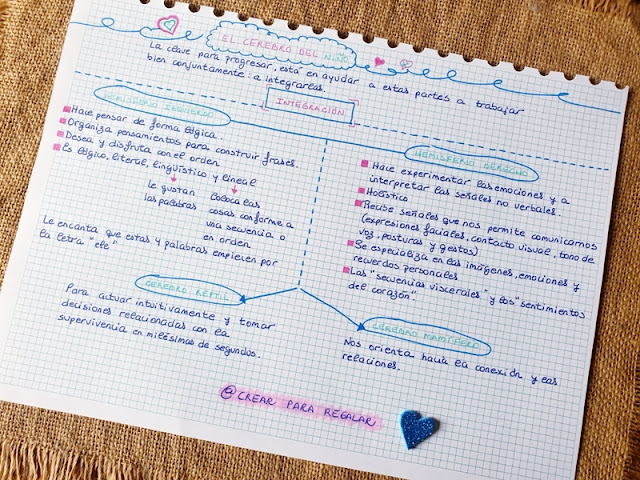 EL CEREBRO DEL NIÑO
La clave para progresar, está en ayudar a estas partes a trabajar
bien conjuntamente: a integrarlas.
INTEGRACIÓN
HEMISFERIO IZQUIERDO
Hace pensar de forma lógica.
Organiza pensamientos para construir frases.
Desea y disfruta con el orden
Es lógico, literal, lingüístico y lineal
le gustan
las palabras
Coloca las
cosas conforme a
una secuencia o
en orden
Le encanta que estas 4 palabras empiecen por
la letra "ele"
HEMISFERIO DERECHO
Hace experimentar las emociones y a
interpretar las señales no verbales.
Holístico
Recibe señales que nos permite comunicarnos
(expresiones faciales, contacto visual, tono de
voz, posturas y gestos)
Se especializa en las imágenes, emociones y
recuerdos personales
Las "secuencias viscerales" y los "sentimientos
del corazón".
CEREBRO REPTIL
Para actuar intuitivamente y tomar
decisiones relacionadas con la
supervivencia en milésimas de segundos.
CEREBRO MAMÍFERO
Nos orienta hacia la conexión y las
relaciones.
@CREAR PARA REGALAR